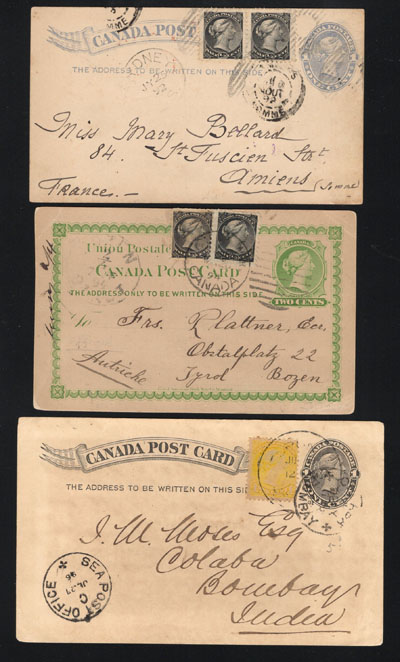 CANADA POST CARD
THE ADDRESS TO BE WRITTEN ON THIS SIDE
AOUT
SOMME
Miss Mary Bollard
84. St Fuscien Strt
Amiens (Somme)
France.—
Union Postale
CANADA POST CARD
THE ADDRESS ONLY TO BE WRITTEN ON THIS SIDE
CANADA
TWO CENTS
Frs. Plattner, Ecr.
Obstalplatz 22
Tyrol Bozen
Autriche
CANADA POST CARD
THE ADDRESS TO BE WRITTEN ON THIS SIDE
BOMBAY
J. M. Moses Esq
Colaba
Bombay
India
SEA POST OFFICE
C
96